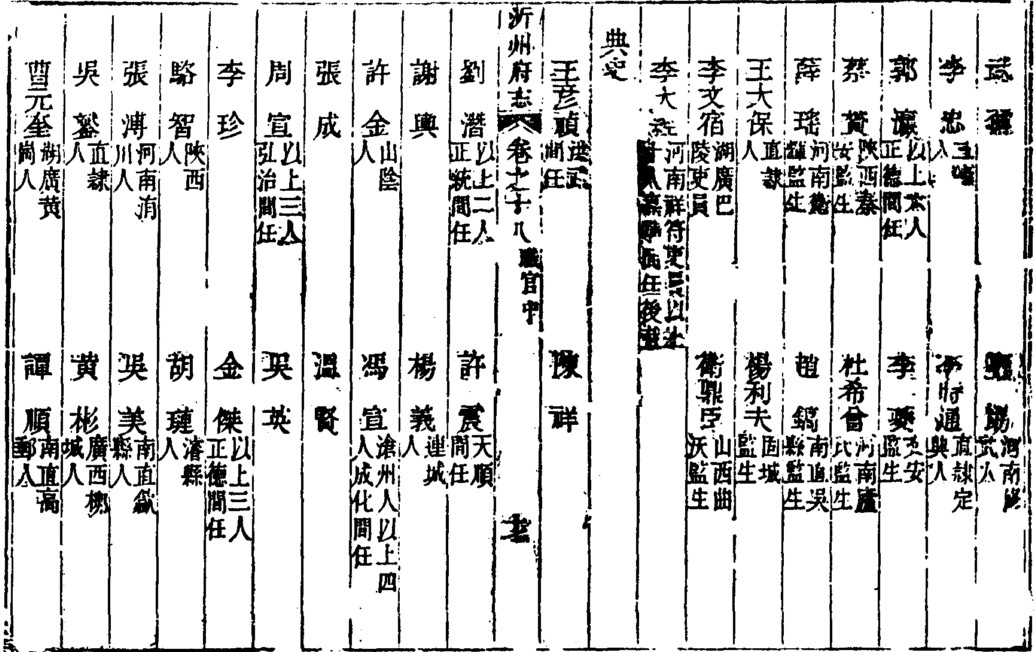 武
河南修武人
李忠 人
李時通 直隸定興人
郭瀛 以上六人正德間任
李 安監生
蔡贊 陝西秦安監生
杜希曾 河南盧氏監生
薛瑤 河南衛輝監生
趙鎬 南直吳縣監生
王大保 直隸人
楊利夫 固城監生
李文宿 湖廣巴陵吏員
衛鼎臣 山西曲沃監生
李大 河南祥符吏員以上 任後裁
典史
王彥禎 洪武間任
陳祥
沂州府志 卷之十八 職官中
劉潛 以上二人正統間任
許震 天順間任
謝興
楊義 連城人
許金 山陰人
馮宣 滄州人以上四人成化間任
張成
溫賢
周宣 以上三人弘治間任
吳英
李珍
金傑 以上三人正德間任
駱智 陝西人
胡璉 濬縣人
張溥 河南 川人
吳美 南直歙縣人
吳 直隸人
黃彬 廣西 城人
曹元奎 湖廣黄崗人
譚順 南直高郵人